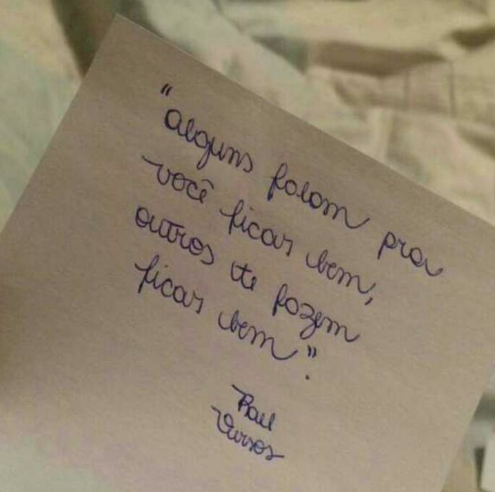 "alguns falam pra
você ficar bem,
outros te fazem
ficar bem".
Raul
Versos